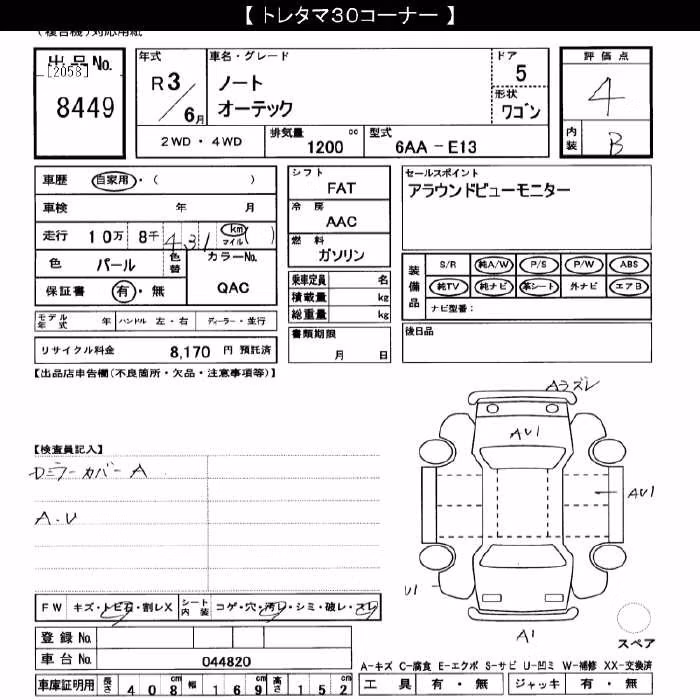 【 トレタマ30コーナー 】
出品No.
[2058]
8449
年式
R3/6月
車名・グレード
ノート
オーテック
ドア
5
形状
ワゴン
評価点
4
内装
B
2WD ・ 4WD
排気量
1200 cc
型式
6AA-E13
車歴 自家用・( )
車検 年 月
走行 10万 8千 431 km マイル ( )
色 パール 色替
カラーNo.
QAC
保証書 有・無
シフト
FAT
冷房
AAC
燃料
ガソリン
乗車定員 名
積載量 kg
総重量 kg
セールスポイント
アラウンドビューモニター
装備品
S/R 純A/W P/S P/W ABS
純TV 純ナビ 革シート 外ナビ エアB
ナビ型番:
モデル年式 年 ハンドル 左・右 ディーラー・並行
リサイクル料金 8,170 円 預託済
書類期限
月 日
後日品
【出品店申告欄(不良箇所・欠品・注意事項等)】
【検査員記入】
ロミラーカバーA
A.U
Aラズレ
AU1
AU1
U1
A1
スペア
FW キズ・トビ石・割レX
シート内装 コゲ・穴・汚レ・シミ・破レ・スレ
登録No.
車台No. 044820
車庫証明用 長さ 408cm 幅 169cm 高さ 152cm
A-キズ C-腐食 E-エクボ S-サビ U-凹ミ W-補修 XX-交換済
工具 有・無 ジャッキ 有・無